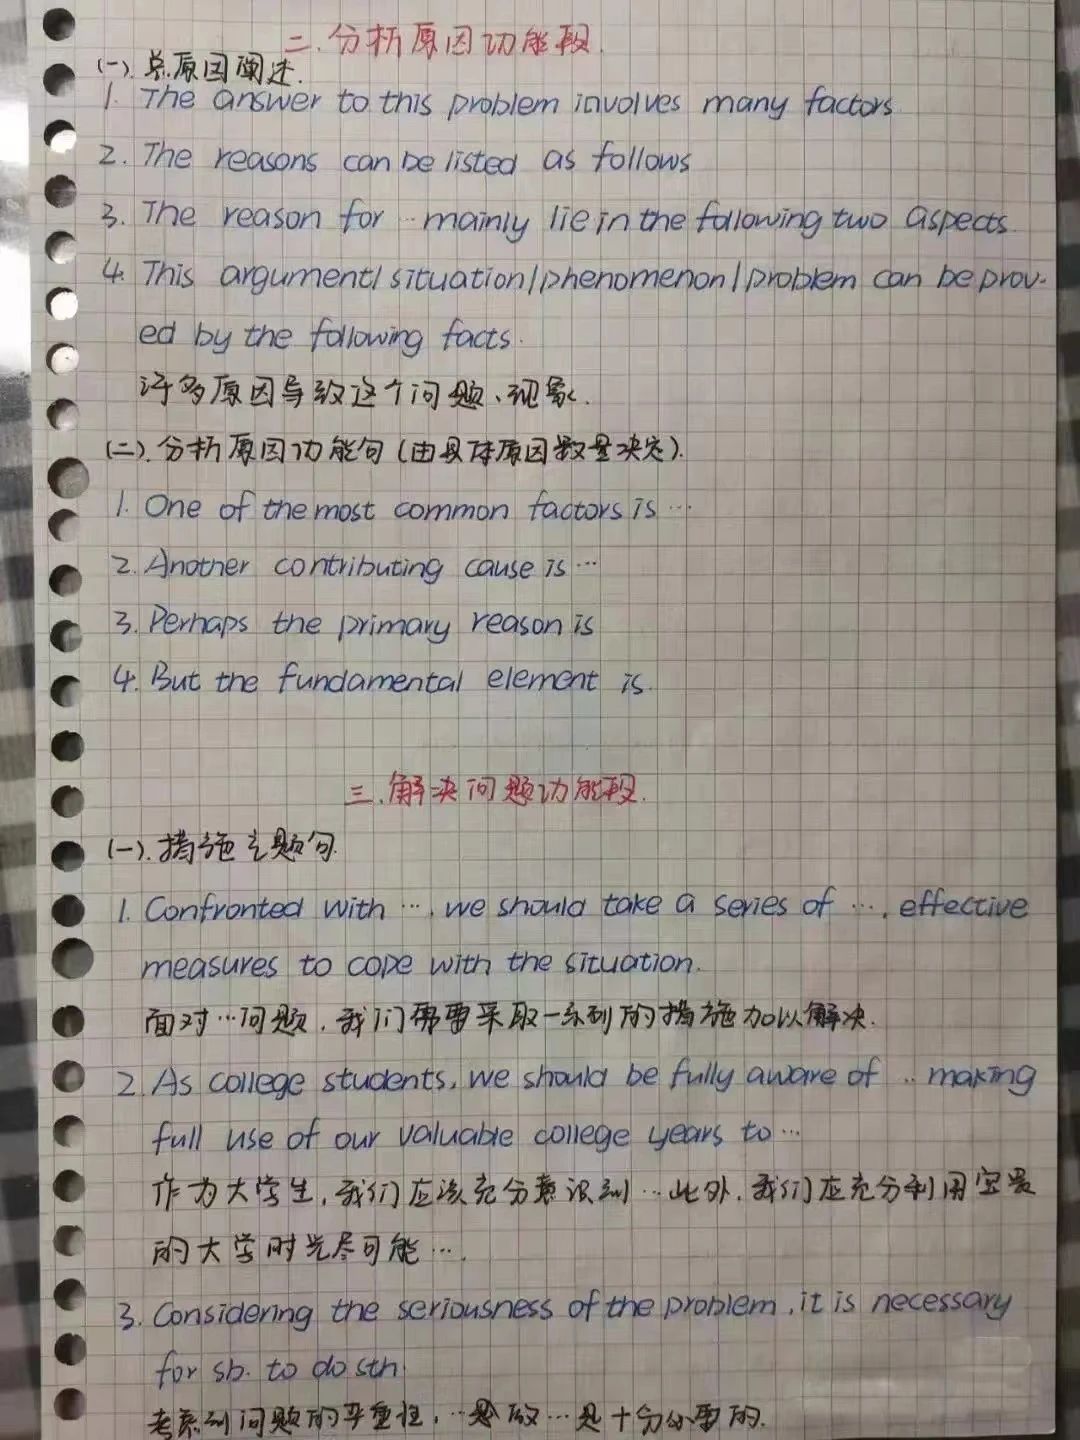 二.分析原因功能段.
(一).总原因阐述.
1. The answer to this problem involves many factors
2. The reasons can be listed as follows
3. The reason for … mainly lie in the following two aspects.
4. This argument/situation/phenomenon/problem can be prov-
ed by the following facts.
许多原因导致这个问题、现象.
(二).分析原因功能句(由具体原因数量决定).
1. One of the most common factors is …
2. Another contributing cause is …
3. Perhaps the primary reason is
4. But the fundamental element is.
三.解决问题功能段.
(一).措施主题句.
1. Confronted with …, we should take a series of …, effective
measures to cope with the situation.
面对…问题,我们需要采取一系列的措施加以解决.
2. As college students, we should be fully aware of … making
full use of our valuable college years to …
作为大学生,我们应该充分意识到…此外,我们应充分利用宝贵
的大学时光尽可能….
3. Considering the seriousness of the problem, it is necessary
for sb. to do sth.
考虑到问题的严重性,…是做…是十分必要的.